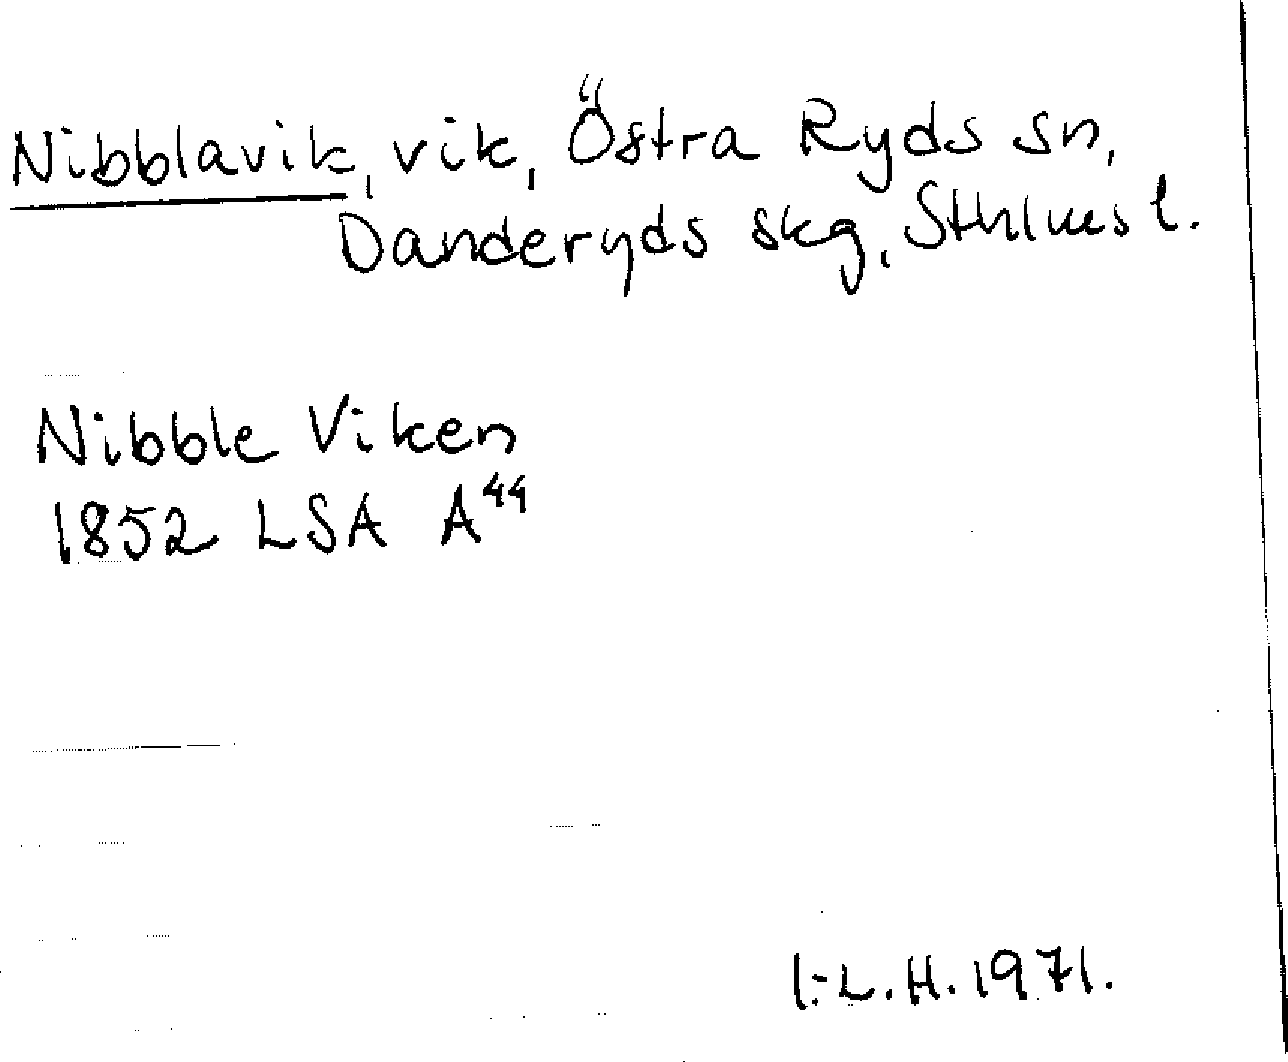 Nibblavik, vik, Östra Ryds sn,
Danderyds skg, Sthlms l.
Nibble Viken
1852 LSA A⁴⁴
I.-L.H. 1971.